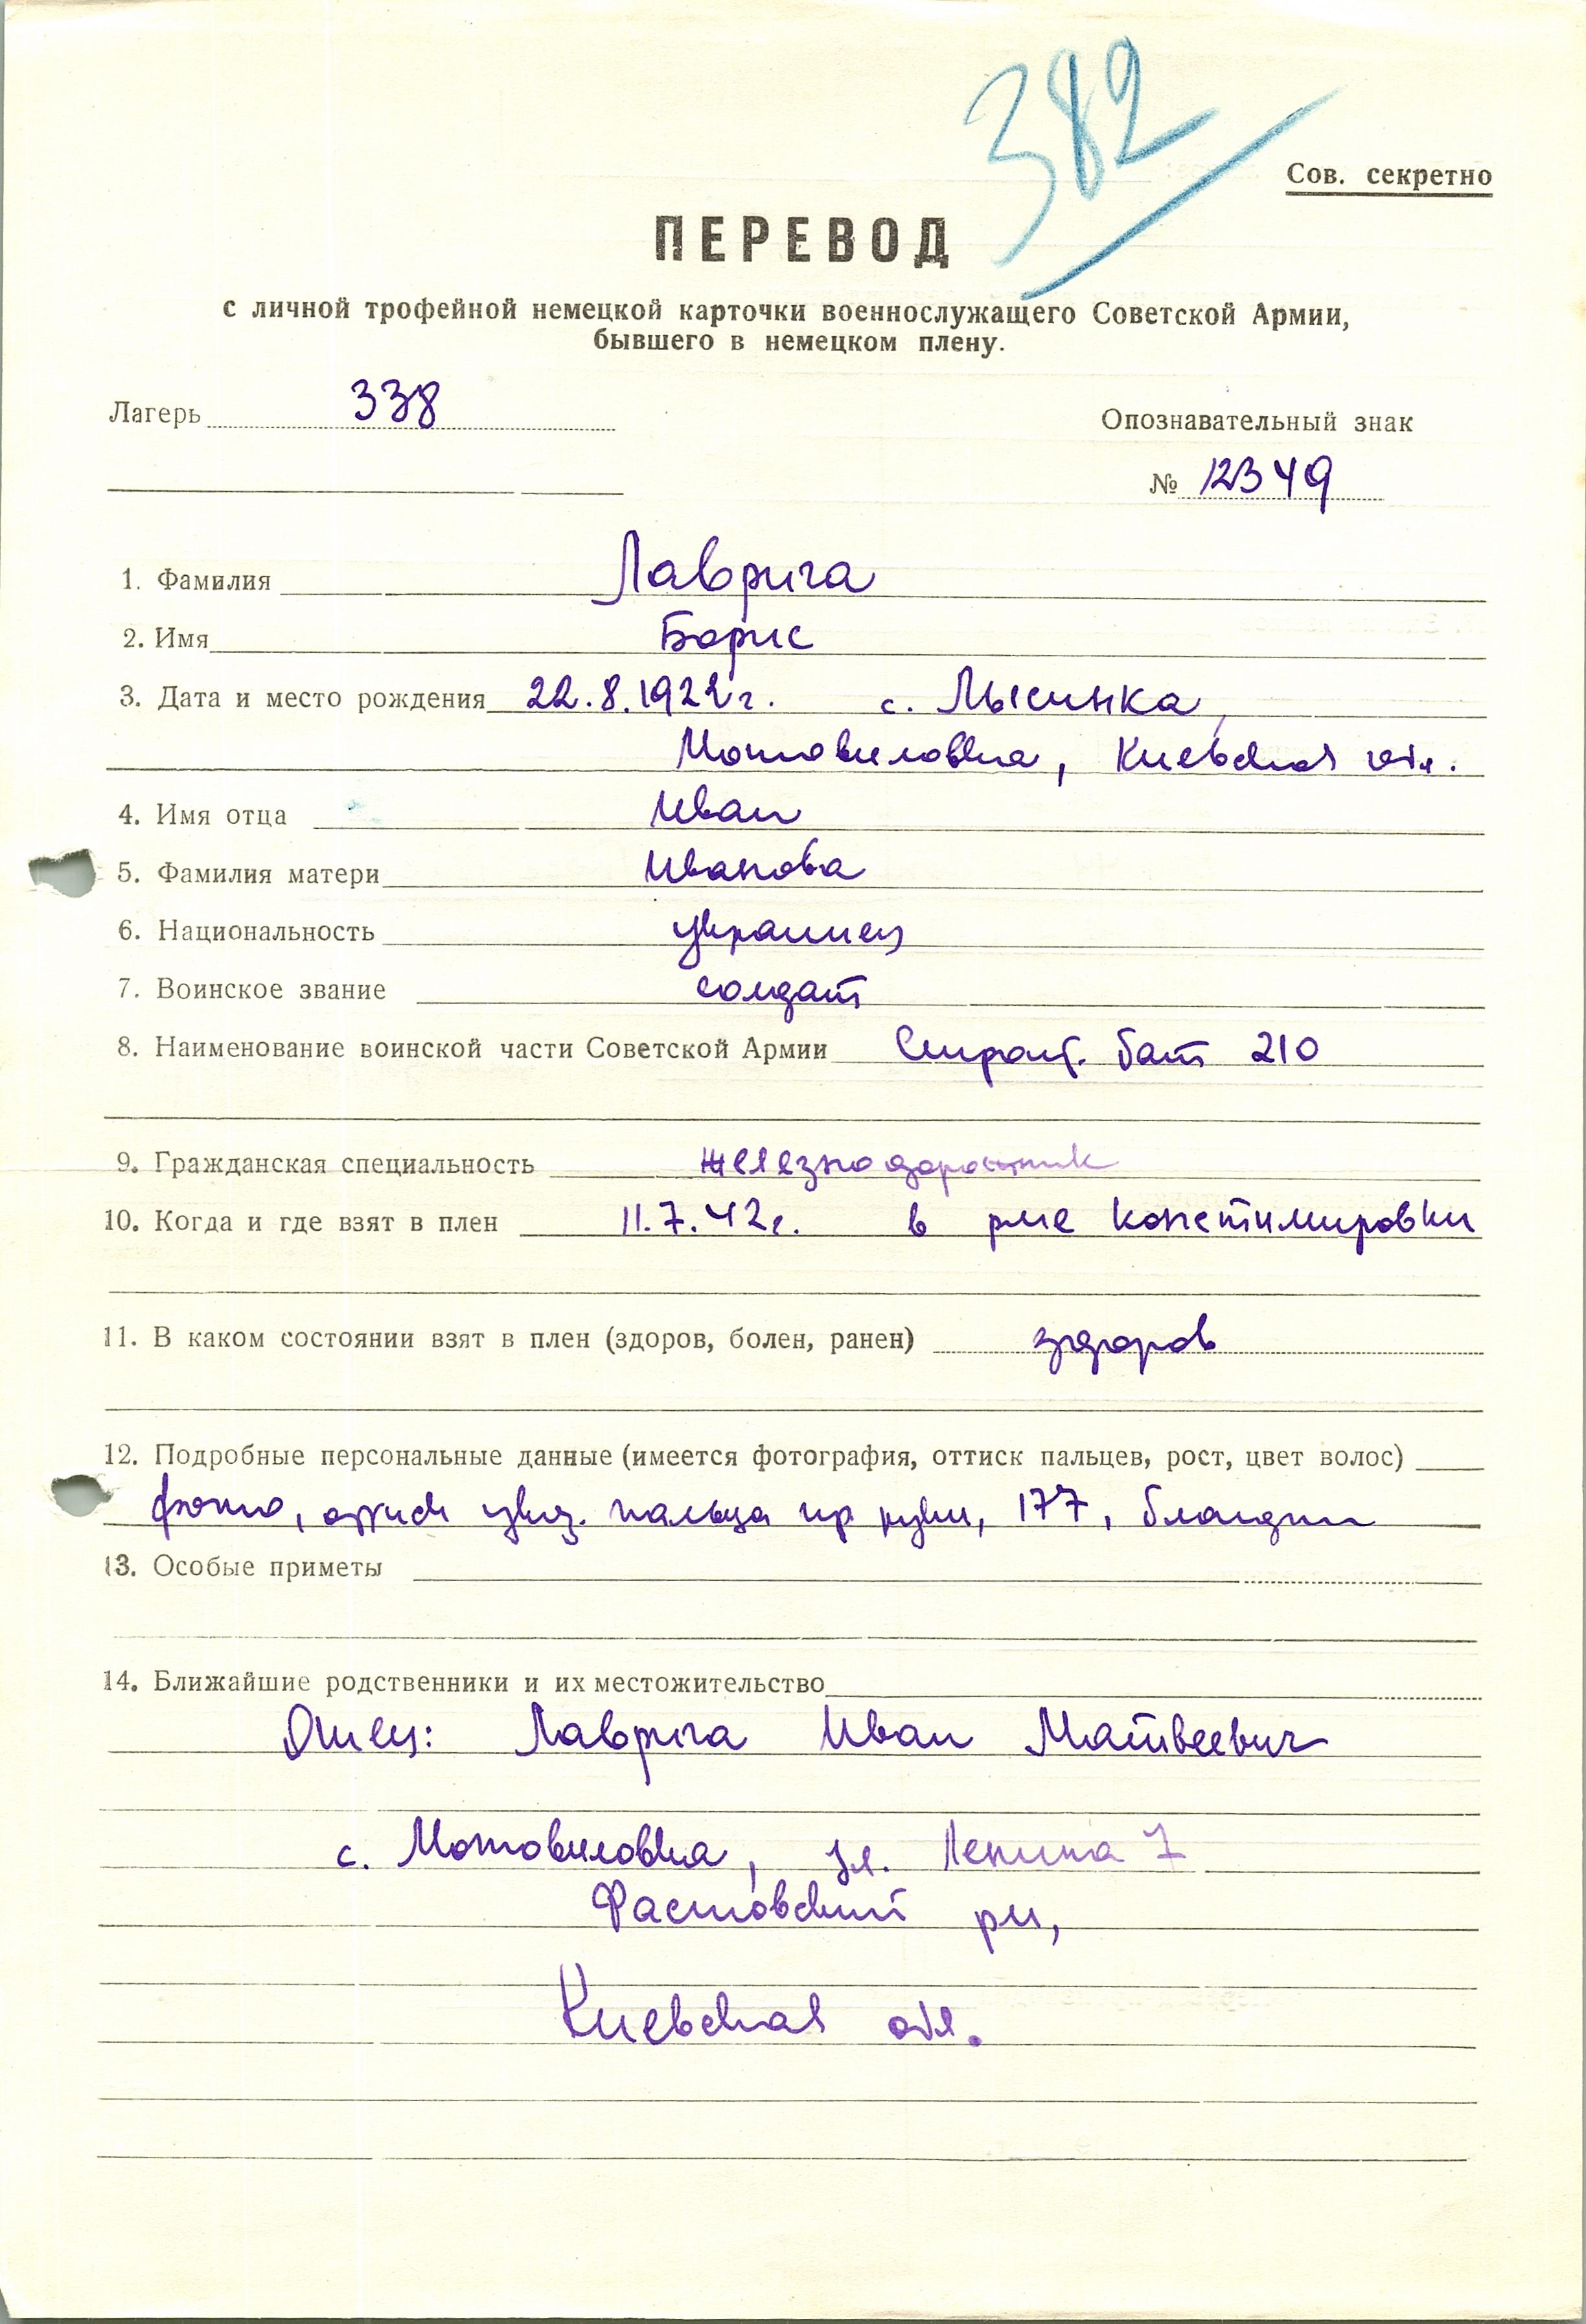 382
Сов. секретно
ПЕРЕВОД
с личной трофейной немецкой карточки военнослужащего Советской Армии,
бывшего в немецком плену.
Лагерь 338
Опознавательный знак
№ 12349
1. Фамилия Лаврига
2. Имя Борис
3. Дата и место рождения 22.8.1922г. с. Лысинка,
Мотовиловка, Киевская обл.
4. Имя отца Иван
5. Фамилия матери Иванова
6. Национальность украинец
7. Воинское звание солдат
8. Наименование воинской части Советской Армии Строит. бат 210
9. Гражданская специальность железнодорожник
10. Когда и где взят в плен 11.7.42г. в р-не
11. В каком состоянии взят в плен (здоров, болен, ранен) здоров
12. Подробные персональные данные (имеется фотография, оттиск пальцев, рост, цвет волос)
фото, оттиск указ. пальца пр руки, 177, блондин
13. Особые приметы
14. Ближайшие родственники и их местожительство
Отец: Лаврига Иван Матвеевич
с. Мотовиловка, ул. Ленина 7
Фастовский р-н,
Киевская обл.